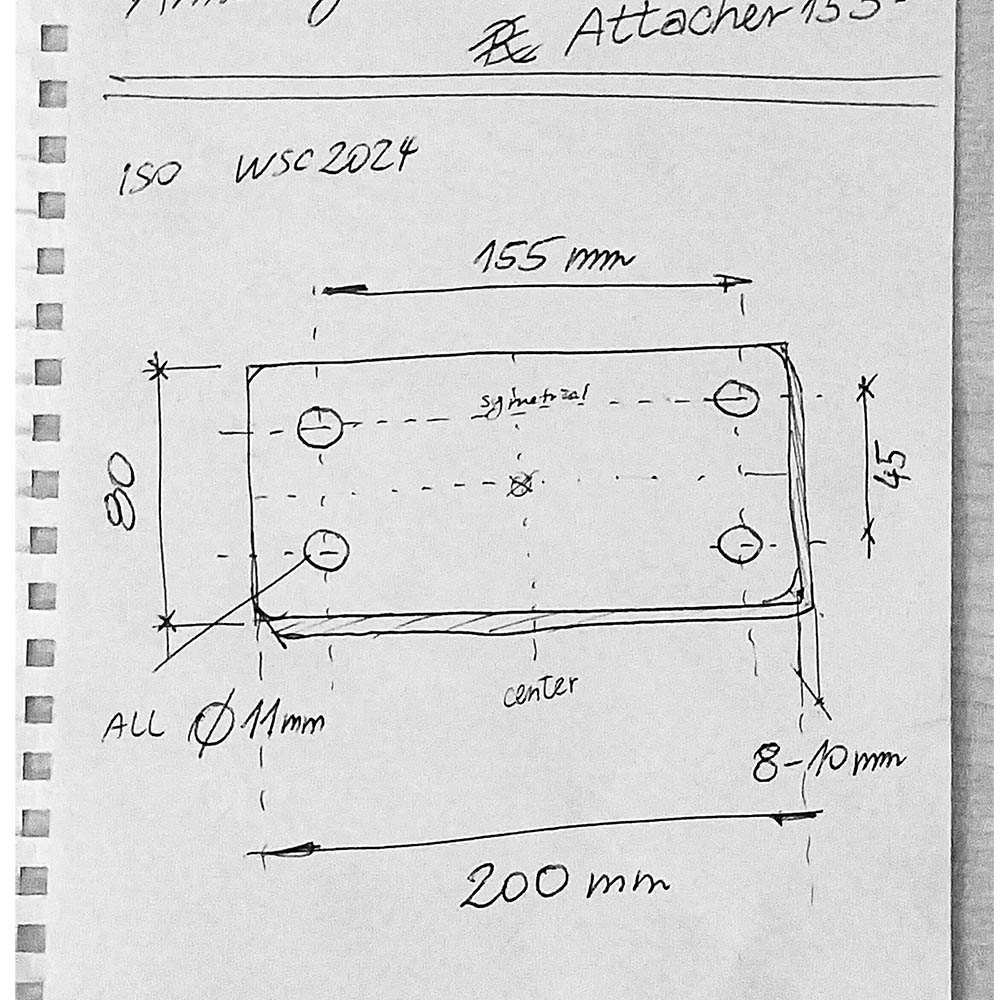 Attacher 155
ISO WSC2024
155 mm
symetrical
80
45
center
ALL Ø 11mm
8-10mm
200 mm